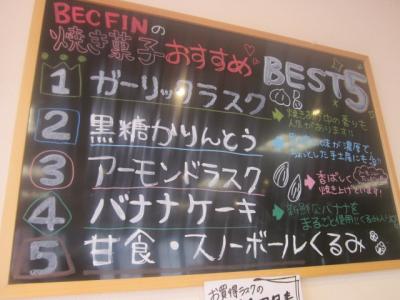 BECFINの
焼き菓子おすすめ BEST5
1 ガーリックラスク
焼きあげ中の香りも
人気があります!!
2 黒糖かりんとう
味が濃厚で、
ちょっとした手土産にも
3 アーモンドラスク
香ばしく
焼き上げています!
4 バナナケーキ
新鮮なバナナを
まるごと使用!!
5 甘食・スノーボールくるみ
お買得ラスクの